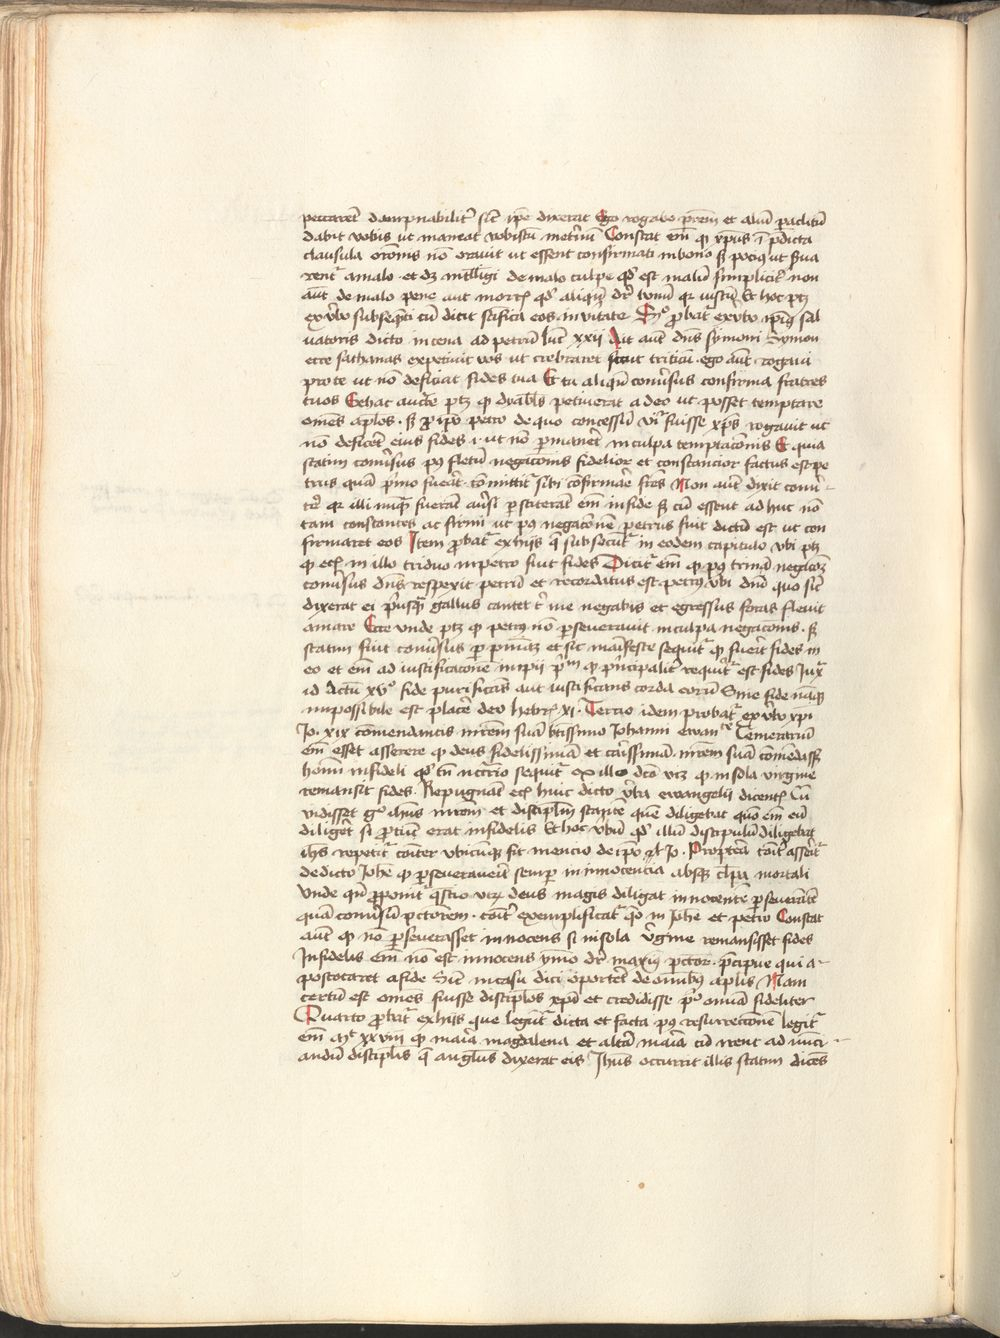 peccarent dampnabiliter sicut ipse dixerat Ego rogabo patrem et alium paclitum
dabit vobis ut maneat vobiscum in eternum Constat enim quod xpus in predicta
clausula oronis non oravit ut essent confirmati in bono sed pocius ut serva
rentur a malo . et debet intelligi de malo culpe quod est malum simpliciter non
autem de malo pene aut mortis quod aliquando dicitur bonum quia iustum Et hoc patet
ex verbo subsequenti cum dicit scifica eos in veritate Secundo probatur ex verbo ipsius sal
vatoris dicto in cena ad petrum luc xxii Ait autem dns symoni Symon
ecce sathanas expetivit vos ut cribraret sicut triticum . ego autem rogavi
pro te ut non deficiat fides tua Et tu aliquando conversus confirma fratres
tuos Ex hac auctoritate patet quod dyabolus petiverat a deo ut posset temptare
omnes aplos . sed pro ipso petro de quo concessum videtur fuisse xpus rogavit ut
non deficeret eius fides .i. ut non permaneret in culpa temptacionis Et quia
statim conversus post fletum negacionis fidelior et constancior factus est pe
trus quam primo fuerat . committitur sibi confirmare fratres Non autem dixit conver-
tere quia illi nunquam fuerant aversi perstiterant enim in fide sed cum essent adhuc non
tam constantes ac firmi ut post negacionem petrus fuit dictum est ut con
firmaret eos Item probatur ex hiis que subsecuntur in eodem capitulo ubi patet
quod eciam in illo triduo in petro fuit fides Dicitur enim quod post trinam negacionem
conversus dns respexit petrum et recordatus est petrus verbi domini quo sicut
dixerat ei priusquam gallus cantet ter me negabis et egressus foras flevit
amare Ecce unde patet quod petrus non perseveravit in culpa negacionis . sed
statim fuit conversus per penitenciam et sic manifeste sequitur quod fuerit fides in
eo et enim ad iustificacionem impii primum quod principaliter requiritur est fides Iuxta
id Actuum xv° fide purificans aut iustificans corda eorum Sine fide namque
impossibile est placere deo hebre xi . Tercio idem probatur ex verbo xpi
Jo . xix comendantis matrem suam btissimo Johanni ewan^te Temerarium
enim esset asserere quod deus fidelissimam et carissimam matrem suam comendasset
homini infideli quod tamen necessario sequitur ex illo dicto videlicet quod in sola virgine
remansit fides . Repugnant eciam huic dicto verba ewangelii dicentis Cum
vidisset ergo ihus matrem et discipulum stantem quem diligebat quomodo enim eum
diligeret si protunc erat infidelis Et hoc verbum quod illum discipulum diligebat
ihs repetitur comuniter ubicumque fit mencio de ipso apud Jo . Propterea comuniter asseritur
de dicto Johe quod perseveraverit semper in innocentia absque culpa mortali
Unde quando proponitur questio utrum deus magis diligat innocentem perseverantem
quam conversum peccatorem . comuniter exemplificatur questio in Johe et petro Constat
autem quod non perseverasset innocens si in sola virgine remansisset fides
Infidelis enim non est innocens ymo dicitur maximus peccator . precipue qui a-
postotaret a fide Sicut in casu dici oporteret de omnibus aplis Nam
certum est omnes fuisse discipulos xpi et credidisse primo omnia fideliter
Quarto probatur ex hiis que leguntur dicta et facta post resurrectionem legitur
enim Mt xxviii quod maria magdalena et altera maria cum irent ad nunci-
andum discipulis que angelus dixerat eis Ihus occurrit illis statim dicens